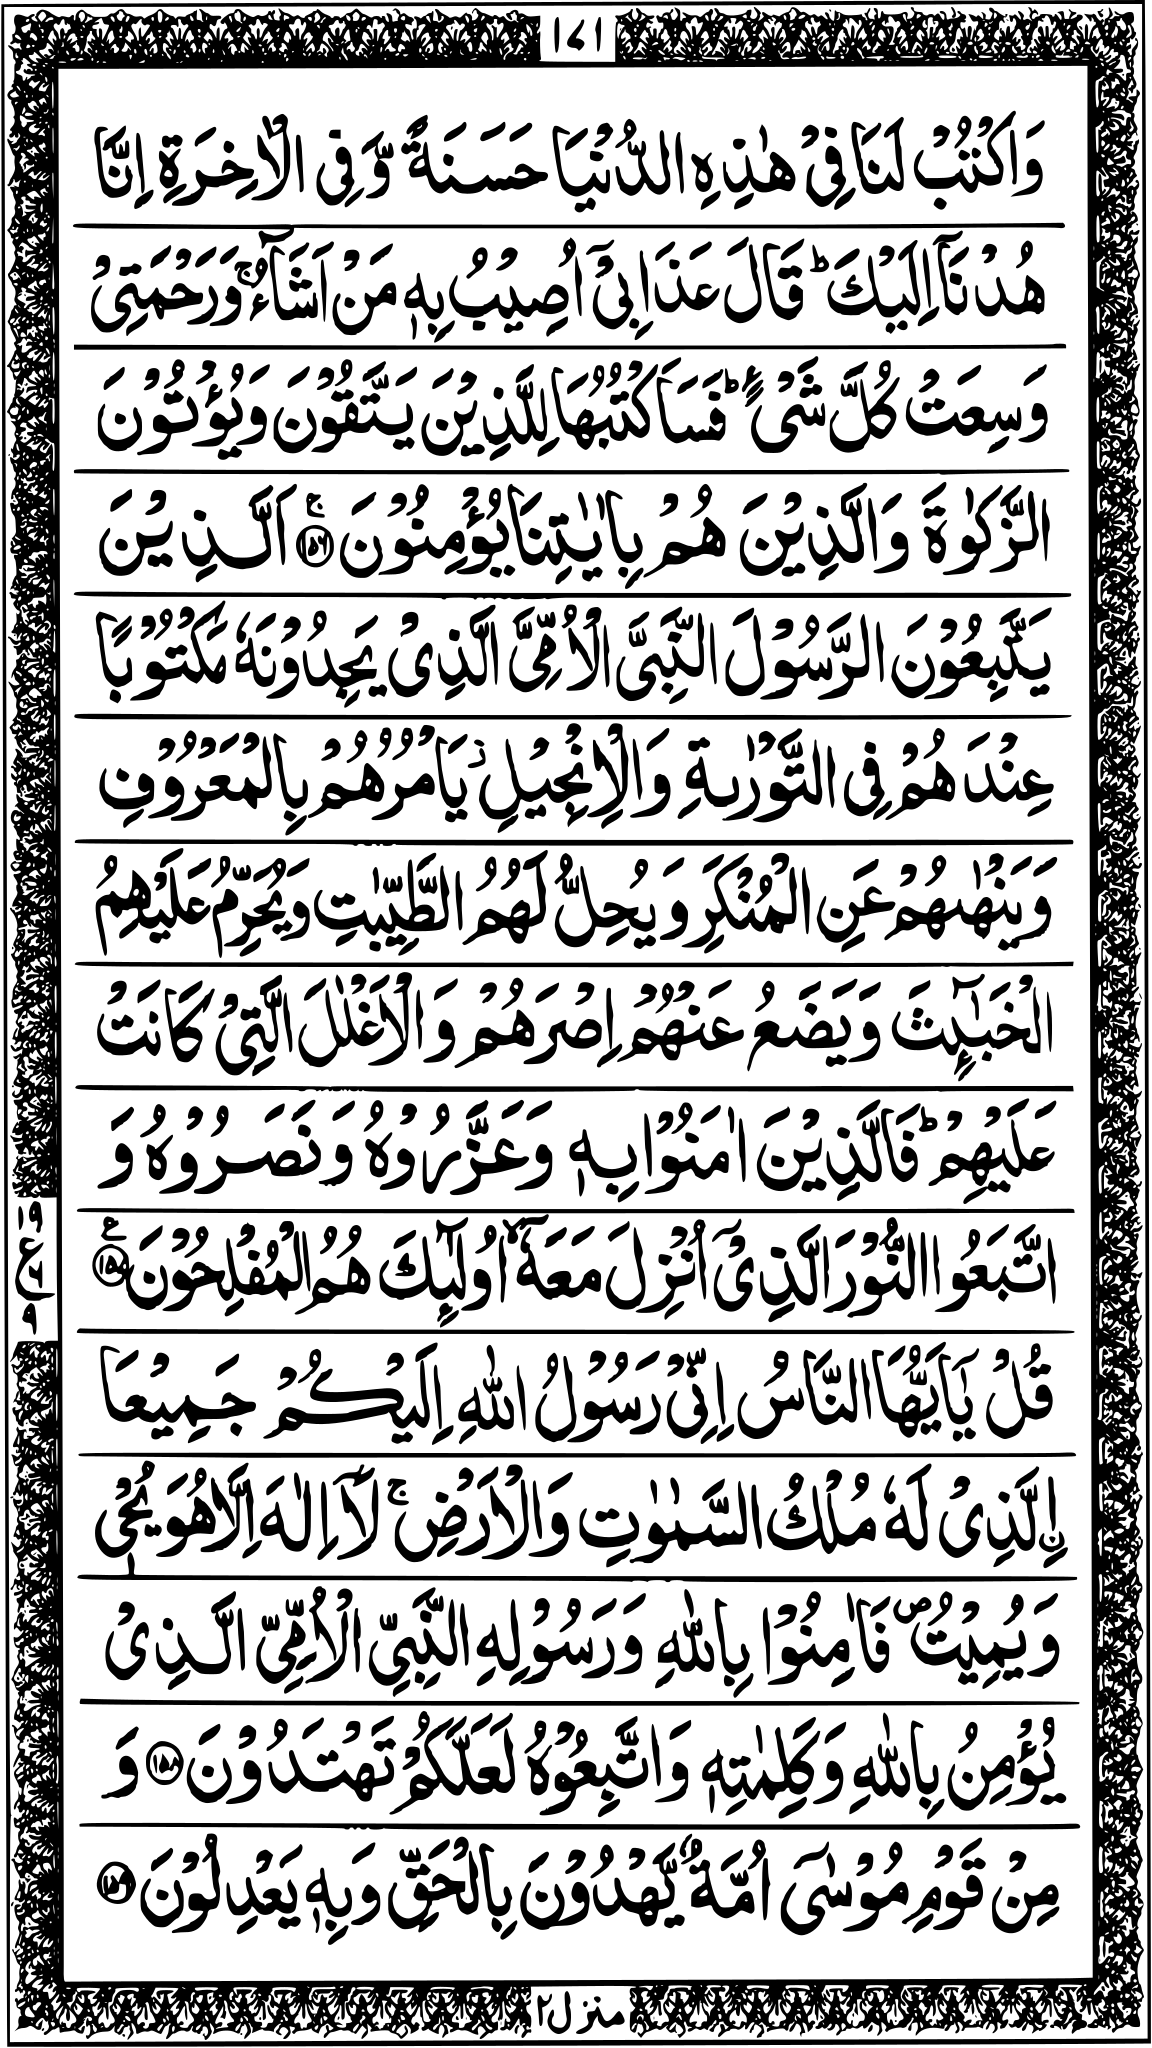 ١٧١
وَاكْتُبْ لَنَا فِیْ هٰذِهِ الدُّنْیَا حَسَنَةً وَّ فِی الْاٰخِرَةِ اِنَّا
هُدْنَاۤ اِلَیْكَ ؕ قَالَ عَذَابِیْۤ اُصِیْبُ بِهٖ مَنْ اَشَآءُ ۚ وَرَحْمَتِیْ
وَسِعَتْ كُلَّ شَیْءٍ ؕ فَسَاَكْتُبُهَا لِلَّذِیْنَ یَتَّقُوْنَ وَیُؤْتُوْنَ
الزَّكٰوةَ وَالَّذِیْنَ هُمْ بِاٰیٰتِنَا یُؤْمِنُوْنَ ﴿۱۵۶﴾ۚ اَلَّذِیْنَ
یَتَّبِعُوْنَ الرَّسُوْلَ النَّبِیَّ الْاُمِّیَّ الَّذِیْ یَجِدُوْنَهٗ مَكْتُوْبًا
عِنْدَهُمْ فِی التَّوْرٰىةِ وَالْاِنْجِیْلِ ؗ یَاْمُرُهُمْ بِالْمَعْرُوْفِ
وَیَنْهٰىهُمْ عَنِ الْمُنْكَرِ وَیُحِلُّ لَهُمُ الطَّیِّبٰتِ وَیُحَرِّمُ عَلَیْهِمُ
الْخَبٰٓىِٕثَ وَیَضَعُ عَنْهُمْ اِصْرَهُمْ وَالْاَغْلٰلَ الَّتِیْ كَانَتْ
عَلَیْهِمْ ؕ فَالَّذِیْنَ اٰمَنُوْا بِهٖ وَعَزَّرُوْهُ وَنَصَرُوْهُ وَ
اتَّبَعُوا النُّوْرَ الَّذِیْۤ اُنْزِلَ مَعَهٗۤ ۙ اُولٰٓىِٕكَ هُمُ الْمُفْلِحُوْنَ ﴿۱۵۷﴾ ع
۱۹
ع
۶
۹
قُلْ یٰۤاَیُّهَا النَّاسُ اِنِّیْ رَسُوْلُ اللّٰهِ اِلَیْكُمْ جَمِیْعَا
ِ۟الَّذِیْ لَهٗ مُلْكُ السَّمٰوٰتِ وَالْاَرْضِ ۚ لَاۤ اِلٰهَ اِلَّا هُوَ یُحْیٖ
وَیُمِیْتُ ۪ فَاٰمِنُوْا بِاللّٰهِ وَرَسُوْلِهِ النَّبِیِّ الْاُمِّیِّ الَّذِیْ
یُؤْمِنُ بِاللّٰهِ وَكَلِمٰتِهٖ وَاتَّبِعُوْهُ لَعَلَّكُمْ تَهْتَدُوْنَ ﴿۱۵۸﴾ وَ
مِنْ قَوْمِ مُوْسٰۤی اُمَّةٌ یَّهْدُوْنَ بِالْحَقِّ وَبِهٖ یَعْدِلُوْنَ ﴿۱۵۹﴾
منزل ۲